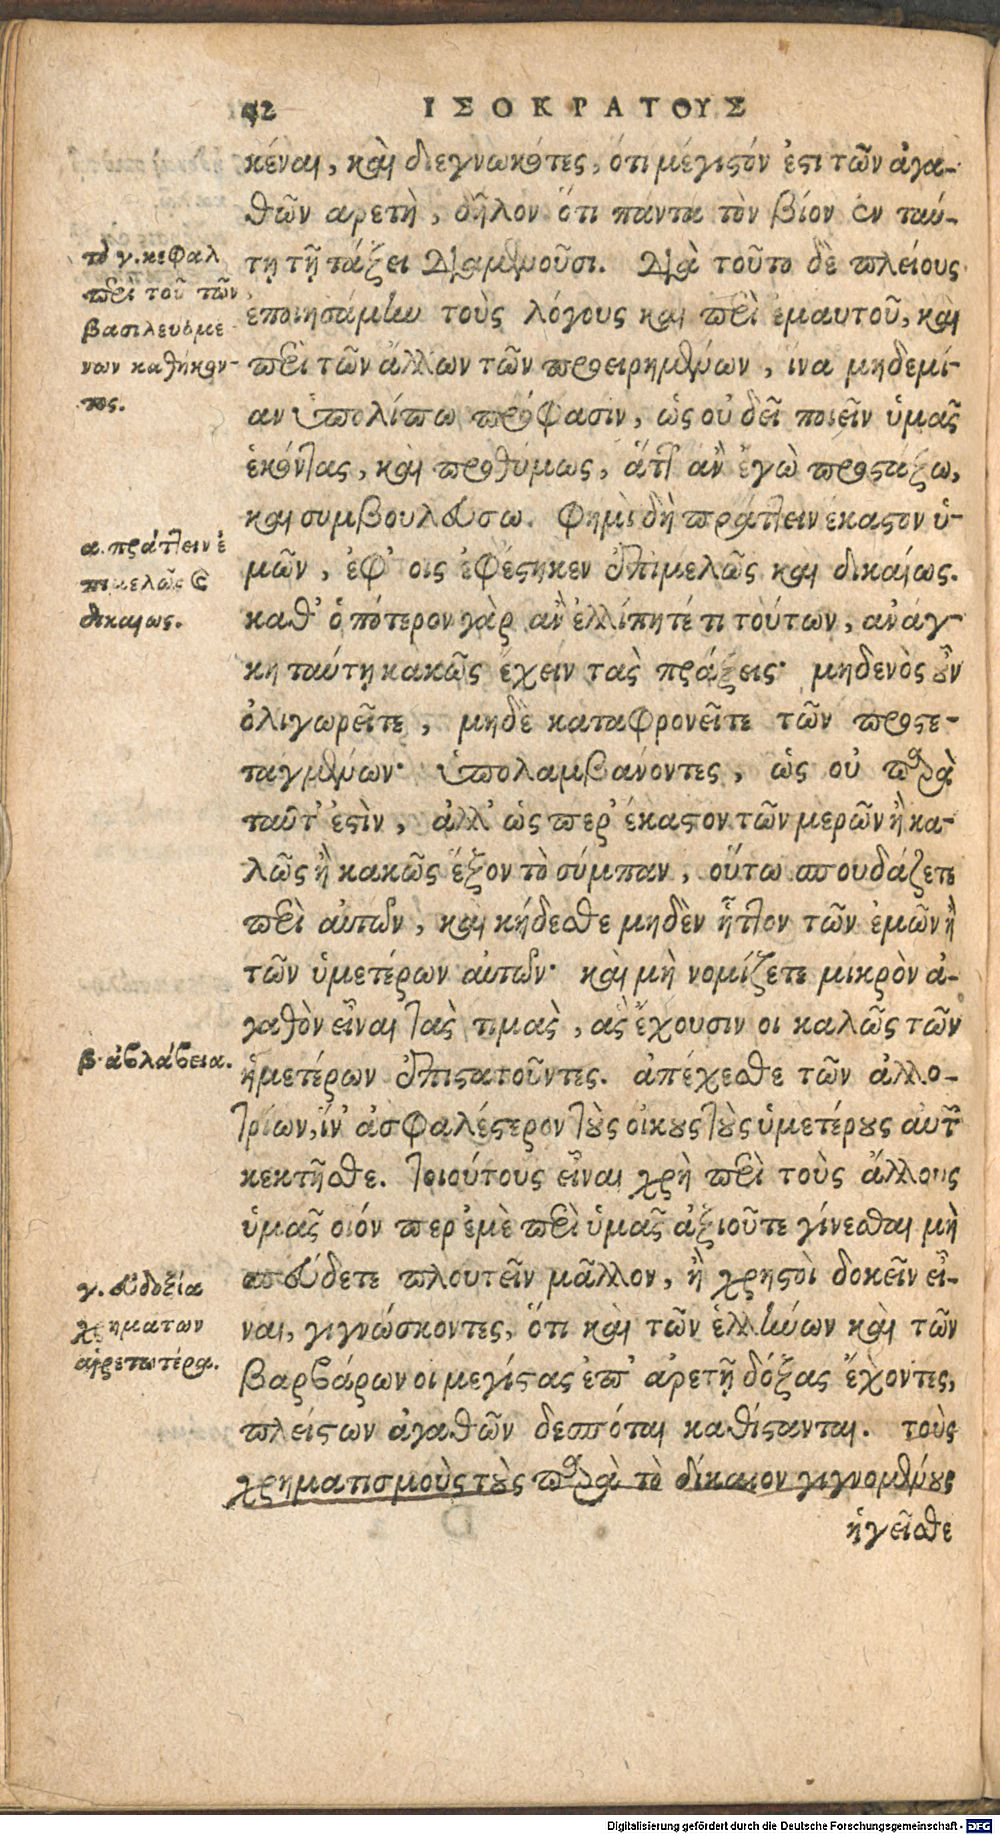 42 ΙΣΟΚΡΑΤΟΥΣ
κέναι, καὶ διεγνωκότες, ὅτι μέγιστόν ἐστι τῶν ἀγα-
θῶν ἀρετὴ, δῆλον ὅτι πάντα τὸν βίον ἐν ταύ-
τῃ τῇ τάξει διαμενοῦσι. Διὰ τοῦτο δὲ πλείους
ἐποιησάμην τοὺς λόγους καὶ περὶ ἐμαυτοῦ, καὶ
περὶ τῶν ἄλλων τῶν προειρημένων, ἵνα μηδεμί-
αν ὑπολίπω πρόφασιν, ὡς οὐ δεῖ ποιεῖν ὑμᾶς
ἑκόντας, καὶ προθύμως, ἅττ' ἂν ἐγὼ προστάξω,
καὶ συμβουλεύσω. Φημὶ δὴ πράττειν ἕκαστον ὑ-
μῶν, ἐφ' οἷς ἐφέστηκεν ἐπιμελῶς καὶ δικαίως.
καθ' ὁπότερον γὰρ ἂν ἐλλίπητέ τι τούτων, ἀνάγ-
κη ταύτῃ κακῶς ἔχειν τὰς πράξεις· μηδενὸς οὖν
ὀλιγωρεῖτε, μηδὲ καταφρονεῖτε τῶν προστε-
ταγμένων· ὑπολαμβάνοντες, ὡς οὐ παρὰ
ταῦτ' ἐστὶν, ἀλλ' ὥσπερ ἕκαστον τῶν μερῶν ἢ κα-
λῶς ἢ κακῶς ἕξον τὸ σύμπαν, οὕτω σπουδάζετε
περὶ αὐτῶν, καὶ κήδεσθε μηδὲν ἧττον τῶν ἐμῶν ἢ
τῶν ὑμετέρων αὐτῶν· καὶ μὴ νομίζετε μικρὸν ἀ-
γαθὸν εἶναι τὰς τιμὰς, ἃς ἔχουσιν οἱ καλῶς τῶν
ἡμετέρων ἐπιστατοῦντες. ἀπέχεσθε τῶν ἀλλο-
τρίων, ἵν' ἀσφαλέστερον τοὺς οἴκους τοὺς ὑμετέρους αὐτῶν
κεκτῆσθε. τοιούτους εἶναι χρὴ περὶ τοὺς ἄλλους
ὑμᾶς οἷόν περ ἐμὲ περὶ ὑμᾶς ἀξιοῦτε γίνεσθαι μὴ
σπεύδετε πλουτεῖν μᾶλλον, ἢ χρηστοὶ δοκεῖν εἶ-
ναι, γιγνώσκοντες, ὅτι καὶ τῶν ἑλλήνων καὶ τῶν
βαρβάρων οἱ μεγίστας ἐπ' ἀρετῇ δόξας ἔχοντες,
πλείστων ἀγαθῶν δεσπόται καθίστανται. τοὺς
χρηματισμοὺς τοὺς παρὰ τὸ δίκαιον γιγνομένους
ἡγεῖσθε
τὸ γ. κεφαλ
περὶ τοῦ τῶν
βασιλευομέ-
νων καθήκον-
τος.
α. πράττειν ἐ
πιμελῶς καὶ
δικαίως.
β. ἀβλάβεια.
γ. εὐδοξία
χρημάτων
αἱρετωτέρα.
Digitalisierung gefördert durch die Deutsche Forschungsgemeinschaft - DFG